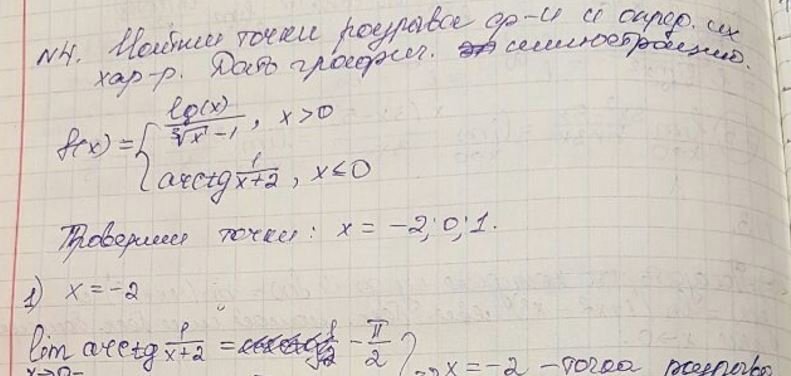 N4. Найти точки разрыва ф-и и опред. их
хар-р. Дать графич. иллюстрацию.
f(x) = { lg(x) / ∛x - 1, x > 0
arctg 1/(x+2), x ≤ 0
Проверим точки: x = -2; 0; 1.
1) x = -2
lim arctg 1/(x+2) = -π/2 } => x = -2 - точка разрыва